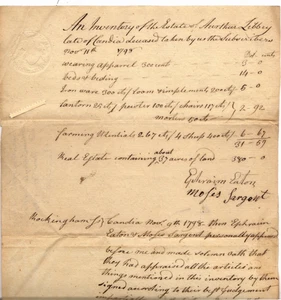 An Inventory of the Estate of Aurthur Libbey
late of Candia deceased taken by us the Subscribers
Nov 11th 1798
wearing apparel 300 cents 3-0
beds & beding 14-0
Iron ware 300
Lantern pewter 100 chairs 2-92
farming utentials 267 4 sheep 400 6-67
31-59
about
Real Estate containing 37 acres of land 380-0
Ephraim Eaton
Moses Sargent
Rockingham Ss Candia Nov. 1798. then Ephraim
Eaton & Moses Sargent personally appeared
before me and made solemn oath that
they had appraised all the articles and
things mentioned in this inventory by them
signed according to their best Judgement